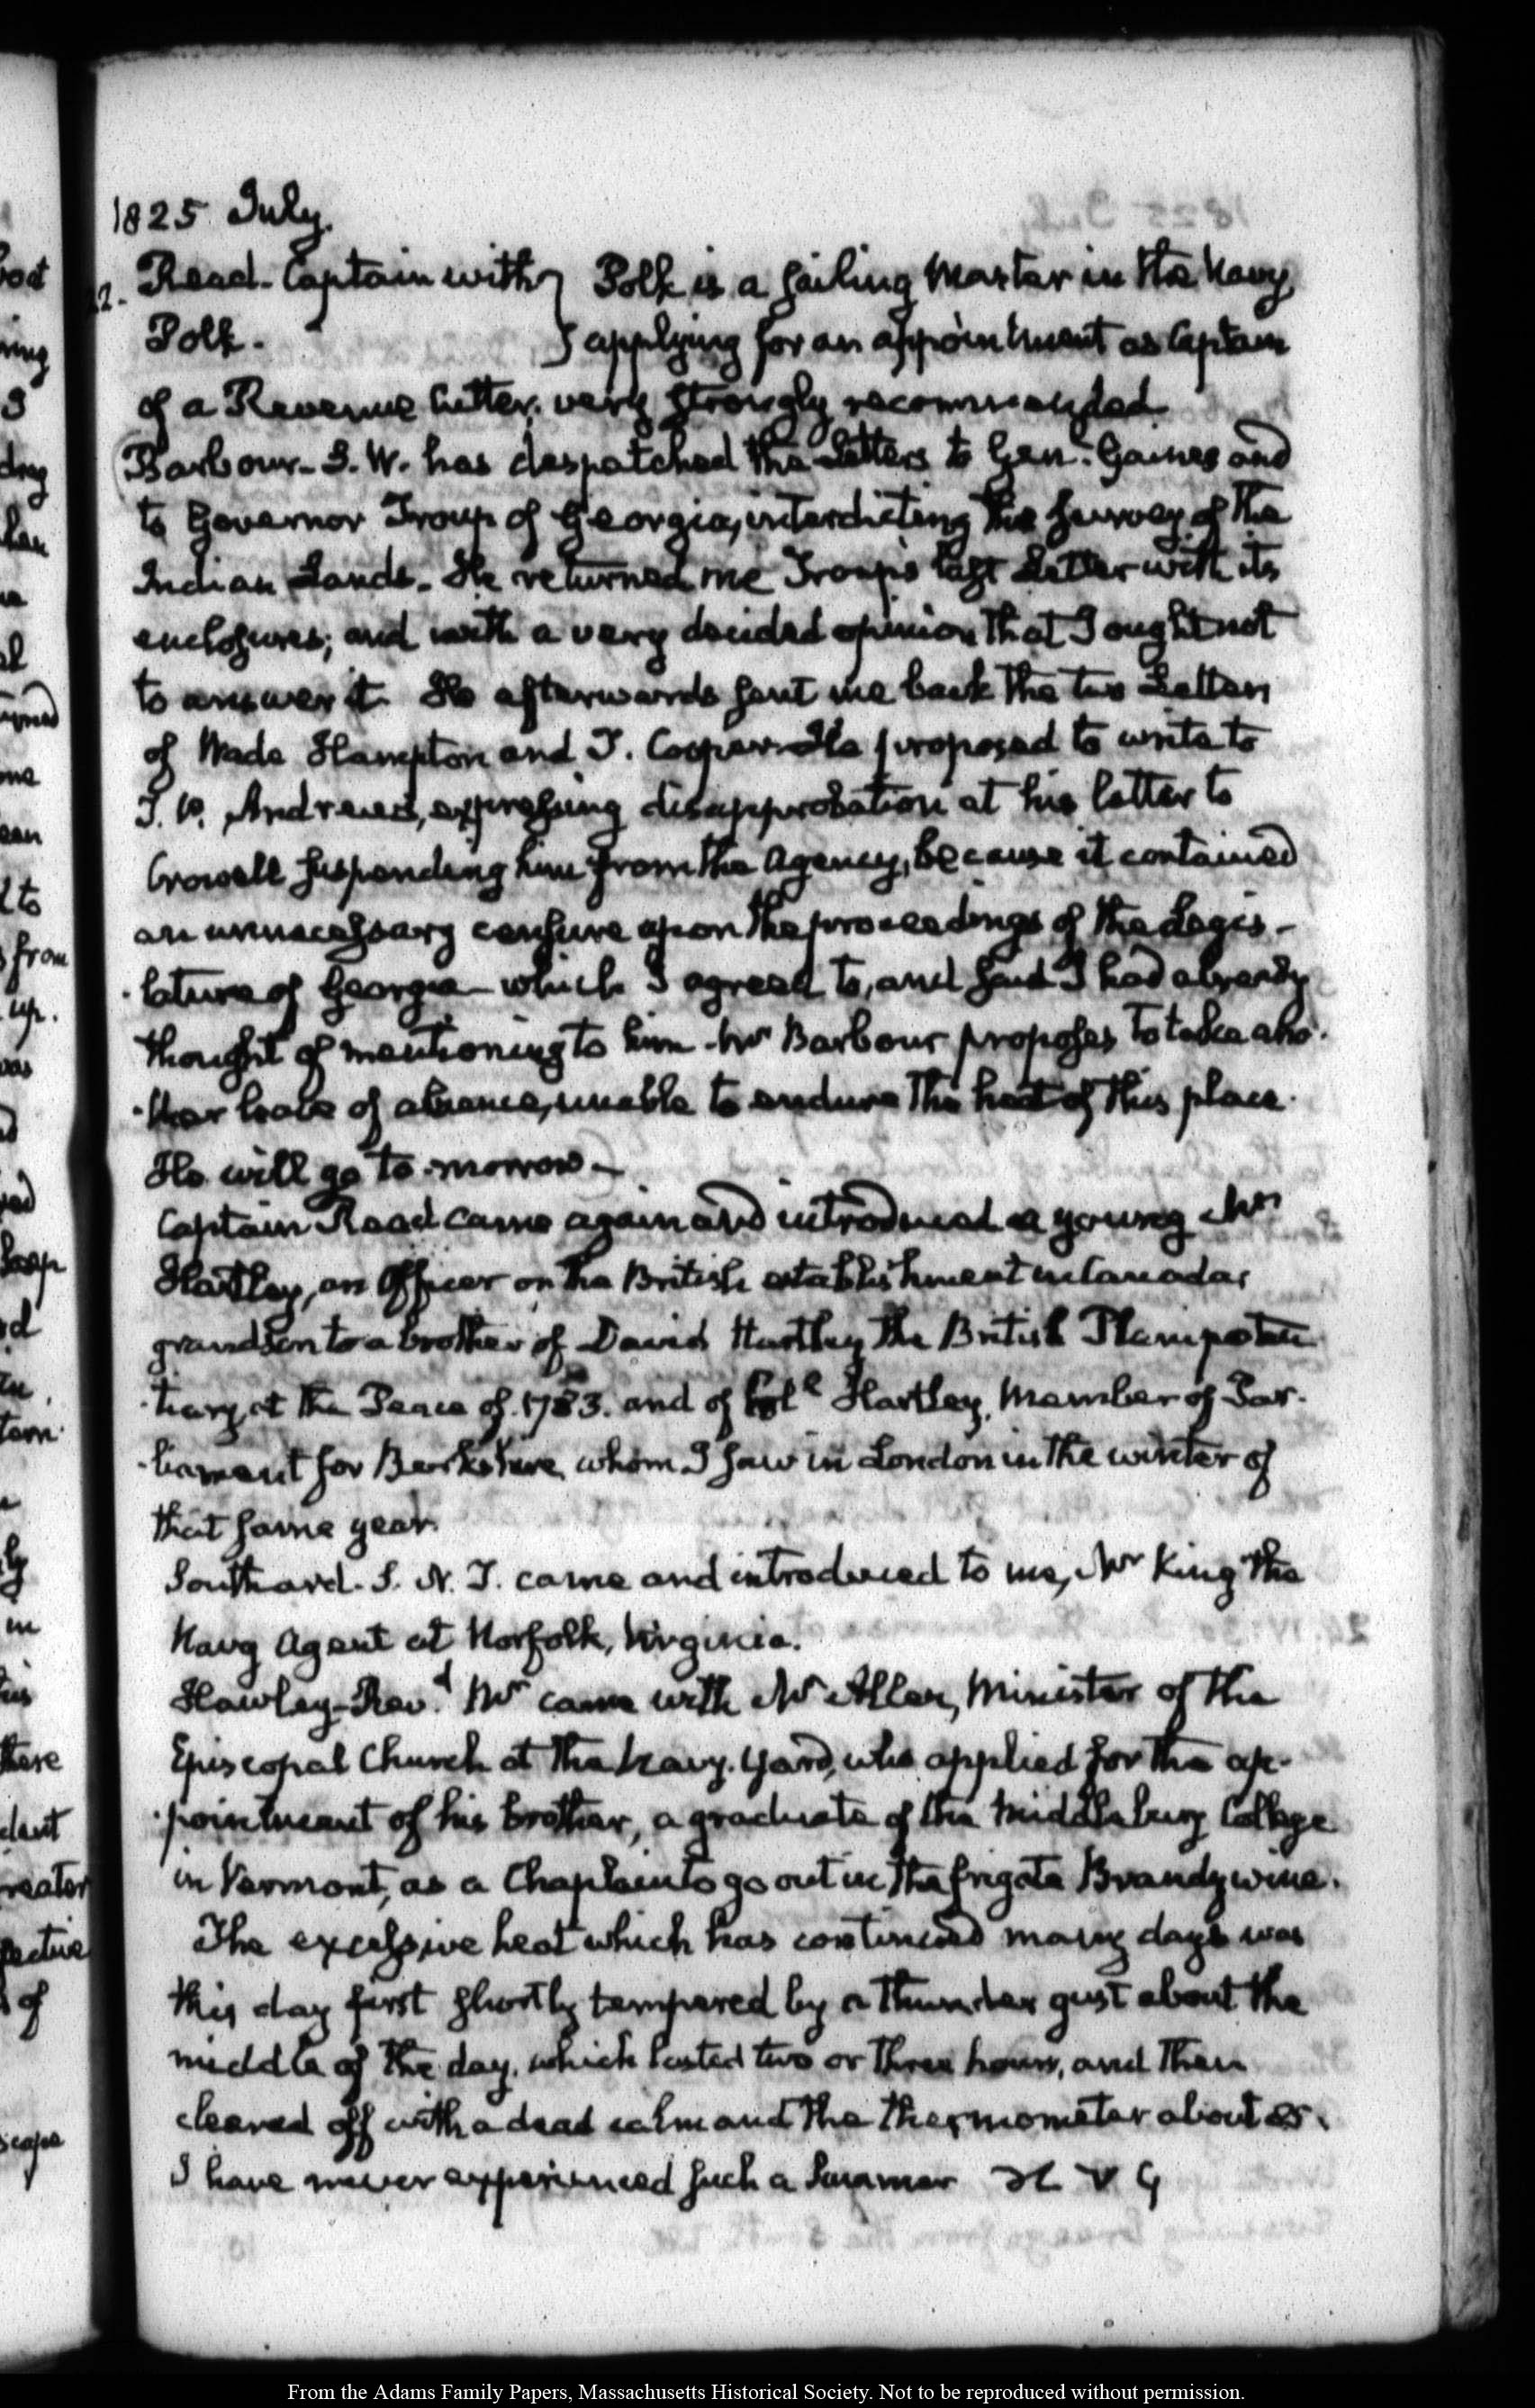 1825 July.
22. Read. Captain with } Polk is a sailing Master in the Navy,
Polk. } applying for an appointment as Captain
of a Revenue Cutter, very strongly recommended.
Barbour. S. W. has despatched the Letters to Genl. Gaines and
to Governor Troup of Georgia, interdicting the survey of the
Indian Lands. He returned me Troup's last Letter with its
enclosures; and with a very decided opinion that I ought not
to answer it. He afterwards sent me back the two Letters
of Wade Hampton and T. Cooper. He proposed to write to
T. P. Andrews, expressing disapprobation at his letter to
Crowell suspending him from the Agency, because it contained
an unnecessary censure upon the proceedings of the Legis-
lature of Georgia—which I agreed to, and said I had already
thought of mentioning to him. Mr Barbour proposes to take ano-
ther leave of absence, unable to endure the heat of this place.
He will go to-morrow.—
Captain Read came again and introduced a young Mr
Hartley, an Officer on the British establishment in Canada;
grandson to a brother of David Hartley the British Plenipoten-
tiary at the Peace of 1783. and of Coll Hartley, Member of Par-
liament for Berkshire, whom I saw in London in the winter of
that same year.
Southard. S. N. T. came and introduced to me, Mr King the
Navy Agent at Norfolk, Virginia.
Hawley—Revd. Mr came with Mr Allen, Minister of the
Episcopal Church at the Navy-Yard, who applied for the ap-
pointment of his brother, a graduate of the Middlebury College
in Vermont, as a Chaplain to go out in the frigate Brandywine.
The excessive heat which has continued many days was
this day first shortly tempered by a Thunder gust about the
middle of the day, which lasted two or three hours, and then
cleared off with a dead calm and the thermometer about 85.
I have never experienced such a Summer
From the Adams Family Papers, Massachusetts Historical Society. Not to be reproduced without permission.